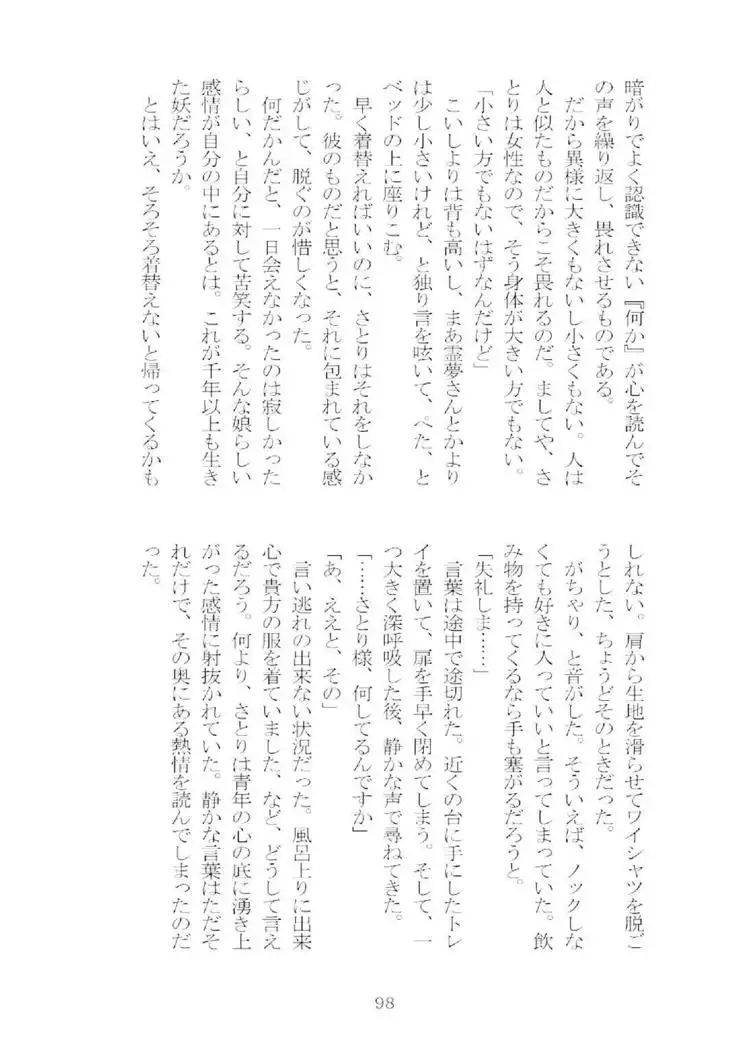 暗がりでよく認識できない『何か』が心を読んでそ
の声を繰り返し、畏れさせるものである。
だから異様に大きくもないし小さくもない。人は
人と似たものだからこそ畏れるのだ。ましてや、さ
とりは女性なので、そう身体が大きい方でもない。
「小さい方でもないはずなんだけど」
こいしよりは背も高いし、まあ霊夢さんとかより
は少し小さいけれど、と独り言を呟いて、ぺた、と
ベッドの上に座りこむ。
早く着替えればいいのに、さとりはそれをしなか
った。彼のものだと思うと、それに包まれている感
じがして、脱ぐのが惜しくなった。
何だかんだと、一日会えなかったのは寂しかった
らしい、と自分に対して苦笑する。そんな娘らしい
感情が自分の中にあるとは。これが千年以上も生き
た妖だろうか。
とはいえ、そろそろ着替えないと帰ってくるかも
しれない。肩から生地を滑らせてワイシャツを脱ご
うとした、ちょうどそのときだった。
がちゃり、と音がした。そういえば、ノックしな
くても好きに入っていいと言ってしまっていた。飲
み物を持ってくるなら手も塞がるだろうと。
「失礼しま……」
言葉は途中で途切れた。近くの台に手にしたトレ
イを置いて、扉を手早く閉めてしまう。そして、一
つ大きく深呼吸した後、静かな声で尋ねてきた。
「……さとり様、何してるんですか」
「あ、ええと、その」
言い逃れの出来ない状況だった。風呂上りに出来
心で貴方の服を着ていました、など、どうして言え
るだろう。何より、さとりは青年の心の底に湧き上
がった感情に射抜かれていた。静かな言葉はただそ
れだけで、その奥にある熱情を読んでしまったのだ
った。
98